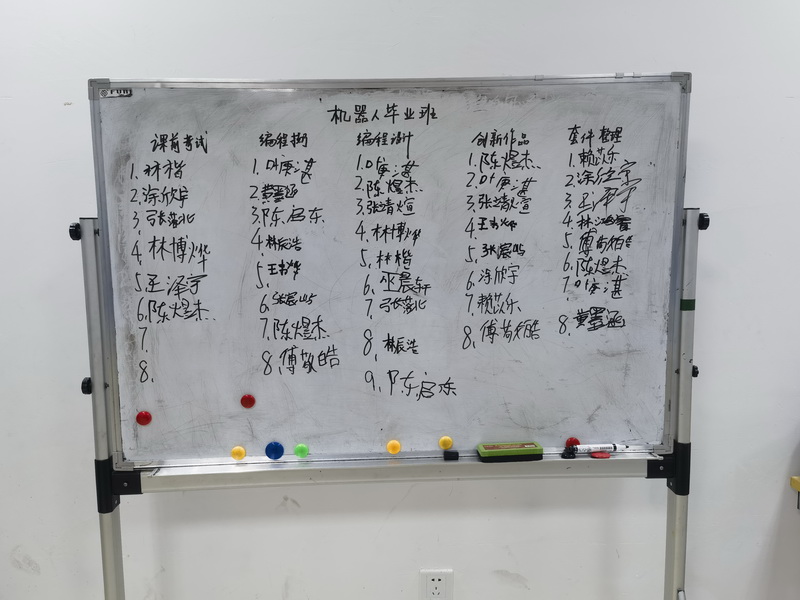 机器人毕业班
课前考试
1.林楷
2.涂欣宇
3.张落北
4.林博烨
5.王泽宇
6.陈煜杰
7.
8.
编程
1.叶庚湛
2.黄墨涵
3.陈启东
4.林辰浩
5.
6.张晨屿
7.陈煜杰
8.傅敬皓
编程设计
1.叶庚湛
2.陈煜杰
3.张清煊
4.林博烨
5.林楷
6.巫晨轩
7.张落北
8.林辰浩
9.陈启东
创新作品
1.陈煜杰
2.叶庚湛
3.张清煊
4.
5.张晨屿
6.涂欣宇
7.赖苡乐
8.傅敬皓
套件整理
1.赖苡乐
2.涂欣宇
3.王泽宇
4.林
5.傅敬皓
6.陈煜杰
7.叶庚湛
8.黄墨涵